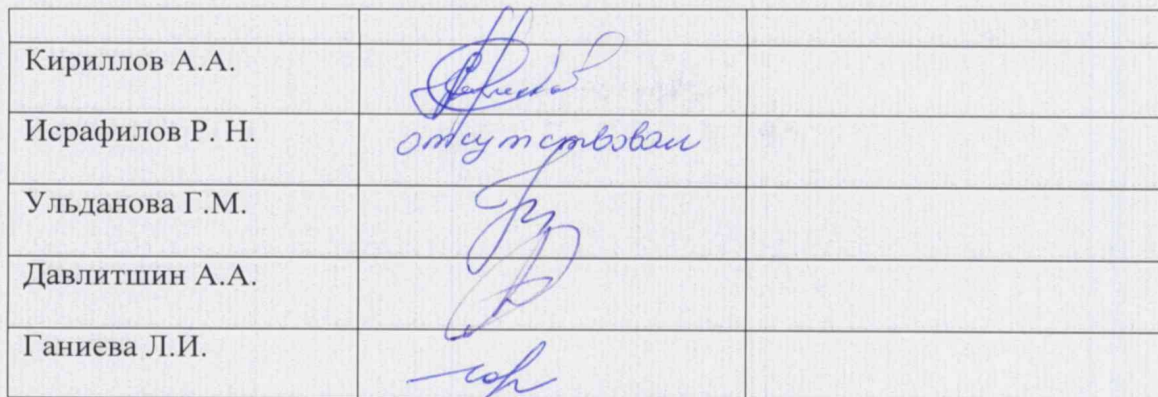 Кириллов А.А.
Исрафилов Р. Н. отсутствовал
Ульданова Г.М.
Давлитшин А.А.
Ганиева Л.И.